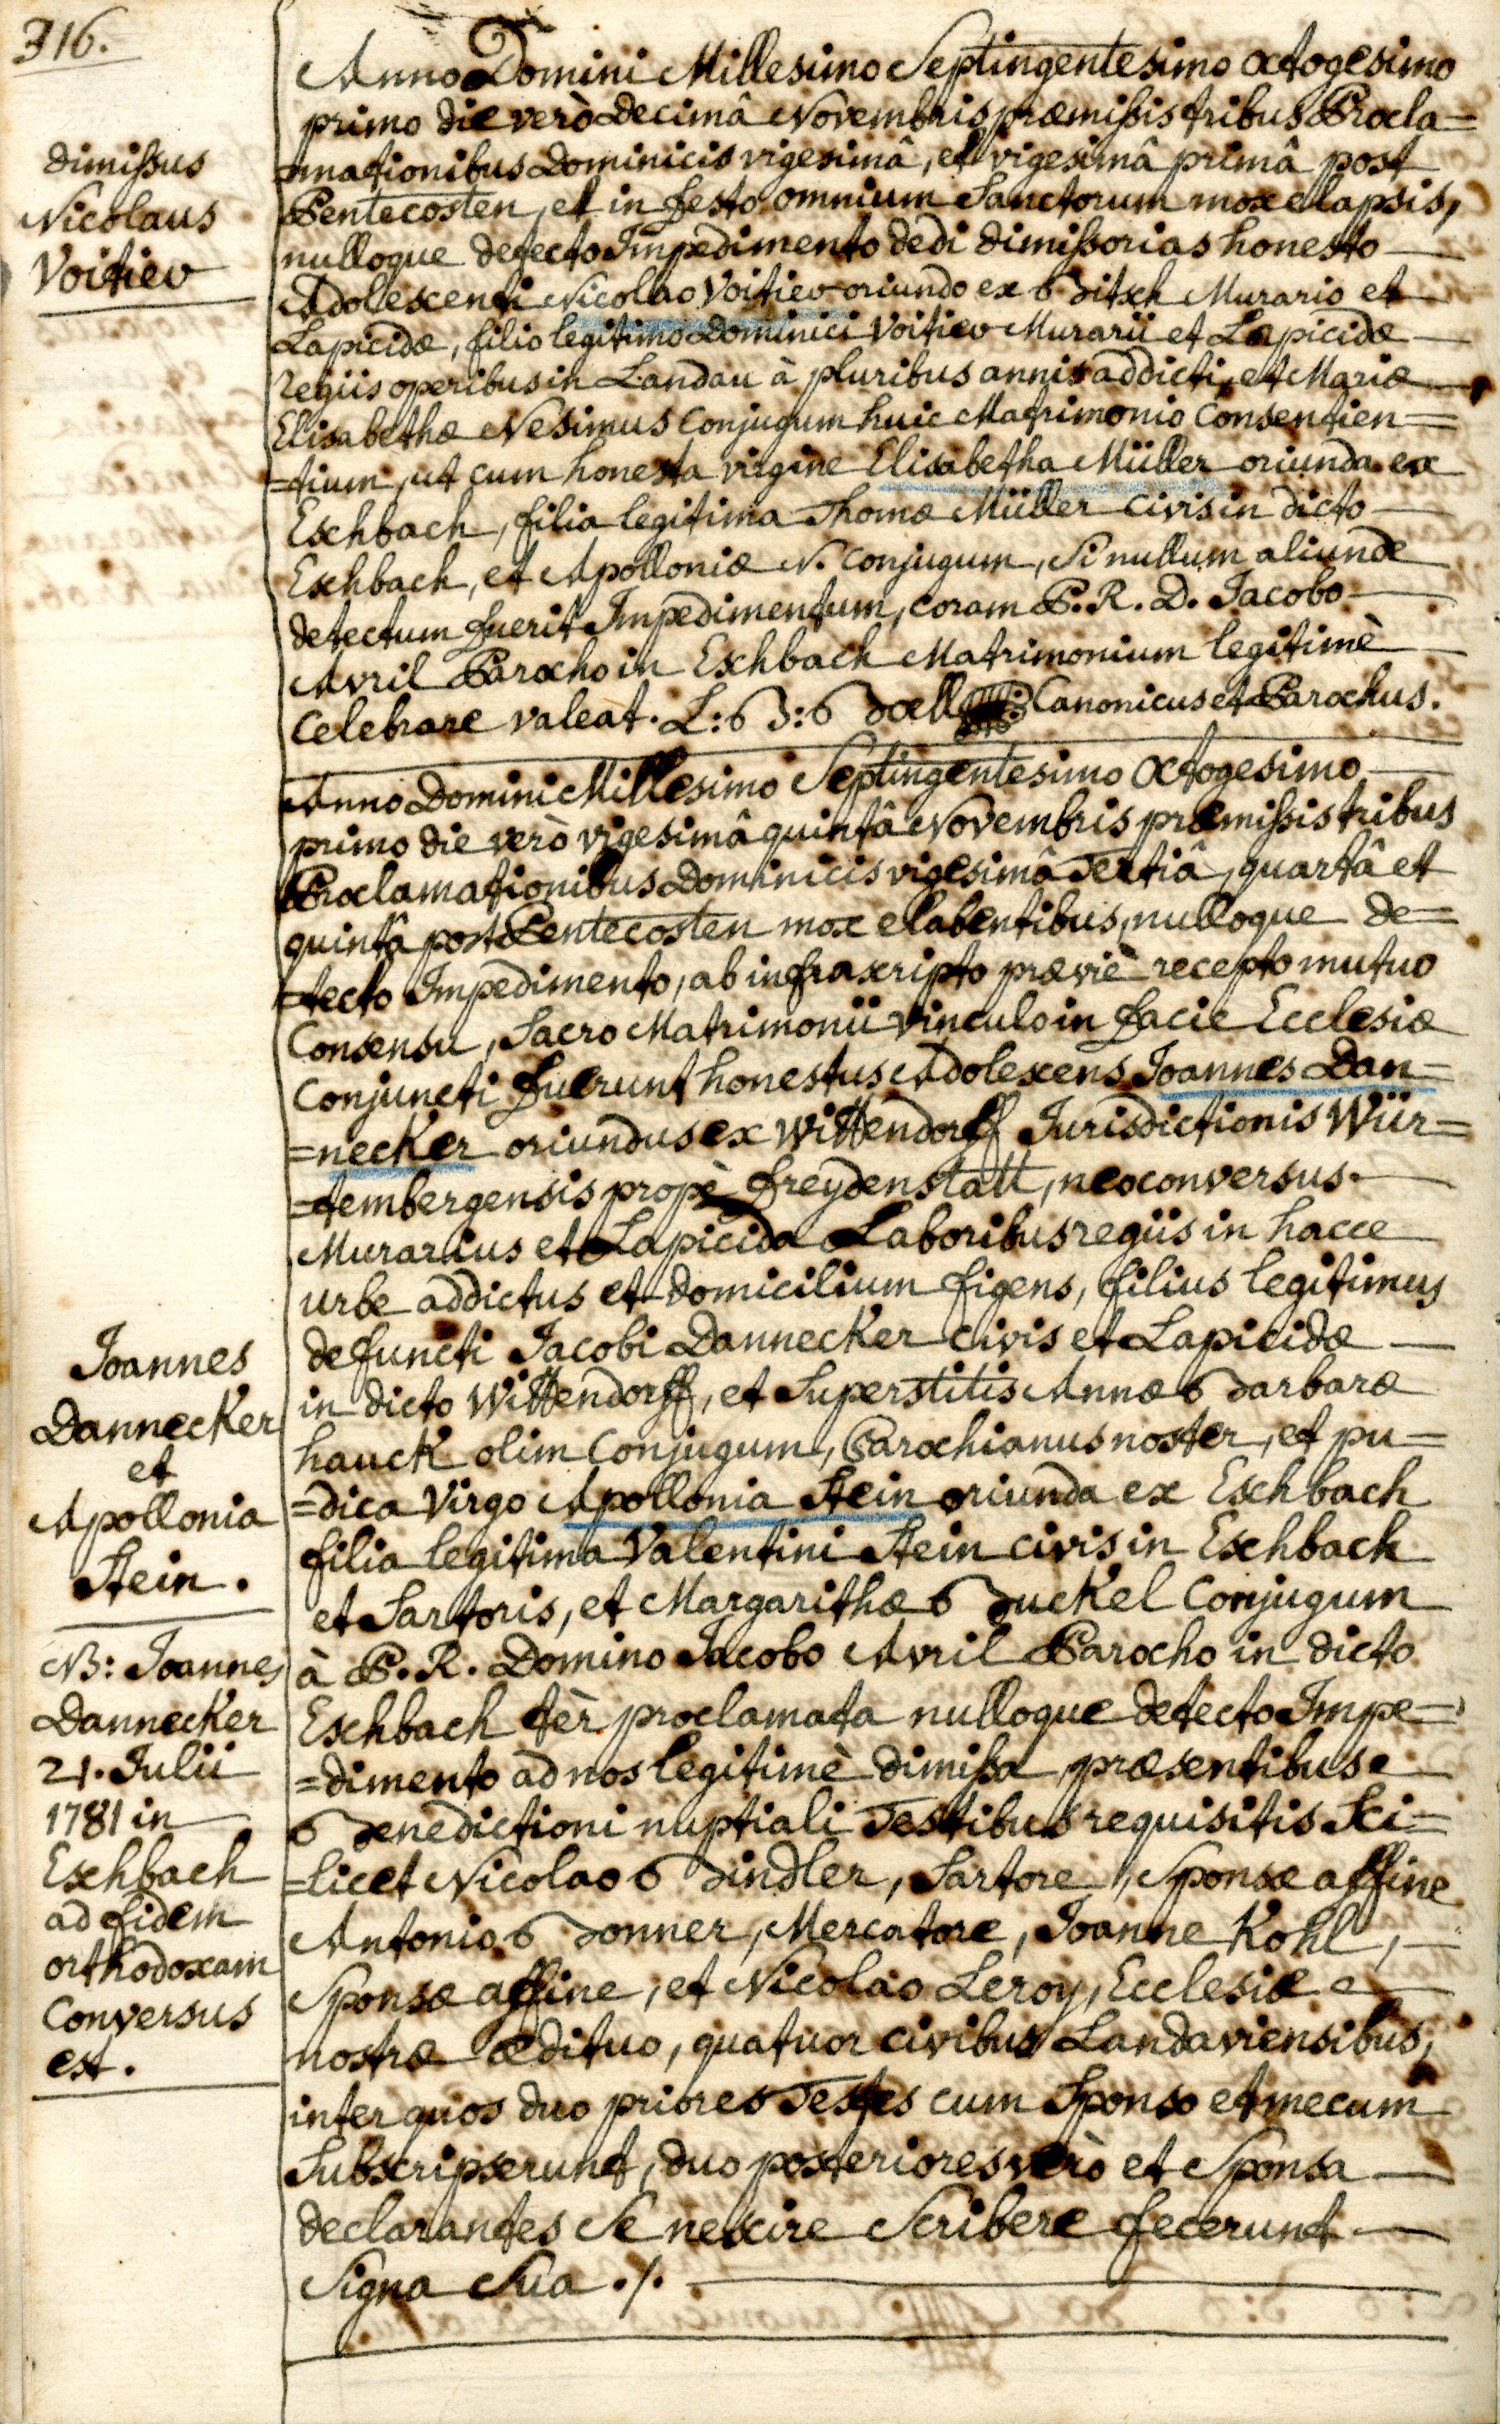 316.
dimissus
Nicolaus
Voitier
Anno Domini Millesimo Septingentesimo Octogesimo
primo die verò decimâ Novembris præmissis tribus Procla=
=mationibus Dominicis vigesimâ, et vigesimâ primâ post
Pentecosten, et in festo omnium Sanctorum mox elapsis,
nulloque detecto Impedimento dedi dimissorias honesto
Adolescenti Nicolao Voitier oriundo ex Bitsch Murario et
Lapicidæ, filio legitimo Dominici Voitier Murarii et Lapicidæ
regiis operibus in Landau à pluribus annis addicti, et Mariæ
Elisabethæ Nesimus Conjugum huic Matrimonio Consentien=
=tium, ut cum honesta virgine Elisabetha Müller oriunda ex
Eschbach, filia legitima Thomæ Müller civis in dicto
Eschbach, et Apolloniæ N. Conjugum, Si nullum aliunde
detectum fuerit Impedimentum, coram P. R. D. Jacobo
Avril Parocho in Eschbach Matrimonium legitimè
Celebrare valeat. L: B: Boell Canonicus et Parochus.
Anno Domini Millesimo Septingentesimo Octogesimo
primo die verò vigesimâ quintâ Novembris præmissis tribus
Proclamationibus Dominicis vigesimâ Tertiâ, quartâ et
quintâ post Pentecosten mox elabentibus, nulloque de=
=tecto Impedimento, ab infrascripto præviè recepto mutuo
Consensu, Sacro Matrimonii vinculo in facie Ecclesiæ
Conjuncti fuerunt honestus Adolescens Joannes Dan=
=necker oriundus ex Wittendorff Jurisdictionis Wür=
=tembergensis propè freydenstatt, neoconversus.
Murarius et Lapicida Laboribus regiis in hacce
urbe addictus et domicilium figens, filius legitimus
defuncti Jacobi Dannecker civis et Lapicidæ
in dicto Wittendorff, et Superstitis Annæ Barbaræ
hauck olim Conjugum, Parochianus noster, et pu=
=dica Virgo Apollonia Stein oriunda ex Eschbach
filia legitima Valentini Stein civis in Eschbach
et Sartoris, et Margarithæ Buckel Conjugum
à P. R. Domino Jacobo Avril Parocho in dicto
Eschbach tèr proclamata nulloque detecto Impe=
=dimento ad nos legitimè dimissa, præsentibus
Benedictioni nuptiali Testibus requisitis Sci=
=licet Nicolao Bindler, Sartore, Sponsæ affine
Antonio Bonner, Mercatore, Joanne Kohl,
Sponsæ affine, et Nicolao Leroy, Ecclesiæ
nostræ ædituo, quatuor civibus Landaviensibus,
inter quos duo priores Testes cum Sponso et mecum
Subscripserunt, duo posteriores verò et Sponsa
declarantes Se nescire Scribere fecerunt
Signa Sua ./.
Joannes
Dannecker
et
Apollonia
Stein.
NB: Joannes
Dannecker
21. Julii
1781 in
Eschbach
ad fidem
orthodoxam
Conversus
est.